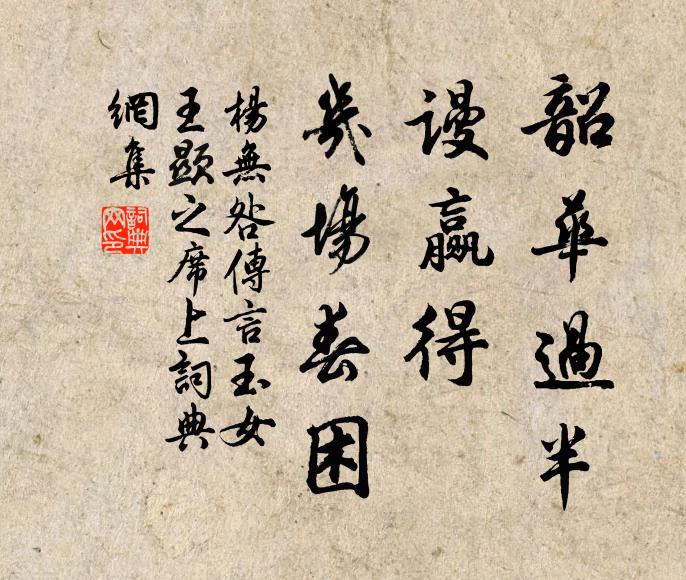 韶華過半
謾贏得
幾場春困
楊無咎傳言玉女
王顯之席上詞典
網集
詞典
网印